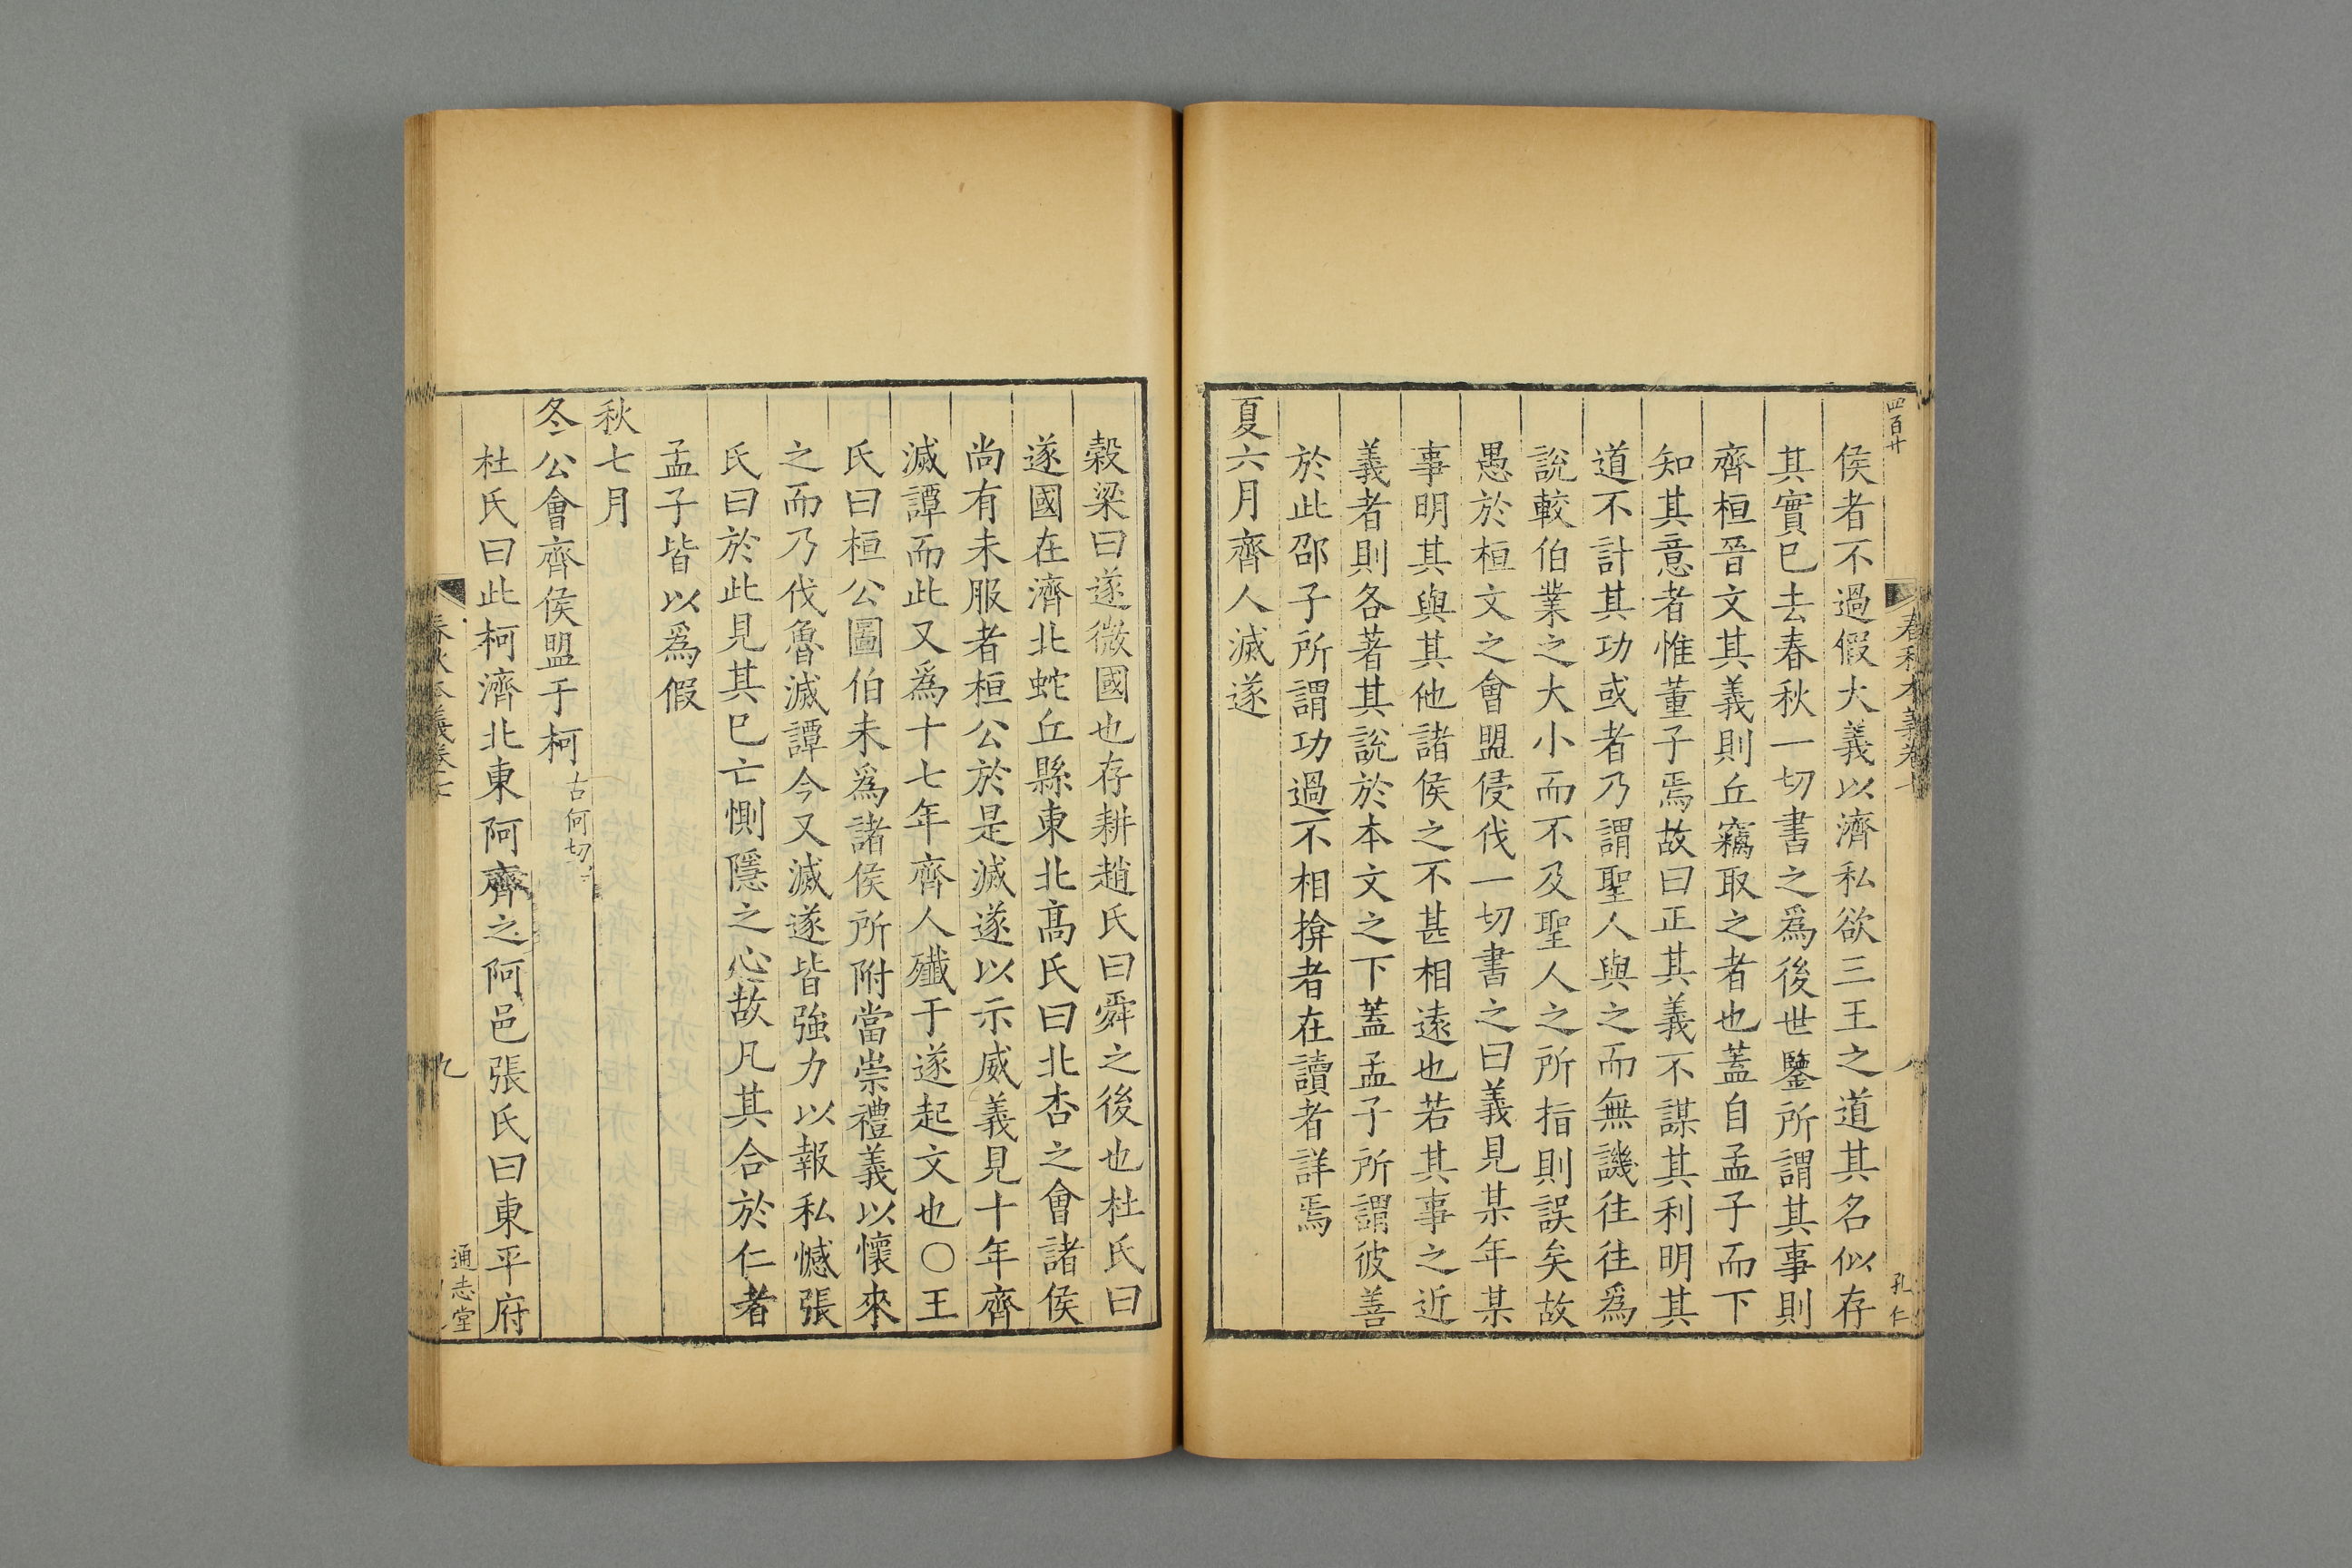 四百廿
春秋本義卷七
八
孔仁
侯者不過假大義以濟私欲三王之道其名似存
其實已去春秋一切書之爲後世鑒所謂其事則
齊桓晉文其義則丘竊取之者也蓋自孟子而下
知其意者惟董子焉故曰正其義不謀其利明其
道不計其功或者乃謂聖人與之而無譏往往爲
說較伯業之大小而不及聖人之所指則誤矣故
愚於桓文之會盟侵伐一切書之曰義見某年某
事明其與其他諸侯之不甚相遠也若其事之近
義者則各著其說於本文之下蓋孟子所謂彼善
於此邵子所謂功過不相揜者在讀者詳焉
夏六月齊人滅遂
穀梁曰遂微國也存耕趙氏曰舜之後也杜氏曰
遂國在濟北蛇丘縣東北高氏曰北杏之會諸侯
尚有未服者桓公於是滅遂以示威義見十年齊
滅譚而此又爲十七年齊人殲于遂起文也○王
氏曰桓公圖伯未爲諸侯所附當崇禮義以懷來
之而乃伐魯滅譚今又滅遂皆強力以報私憾張
氏曰於此見其已亡惻隱之心故凡其合於仁者
孟子皆以爲假
秋七月
冬公會齊侯盟于柯古何切
杜氏曰此柯濟北東阿齊之阿邑張氏曰東平府
春秋本義卷七
九
通志堂